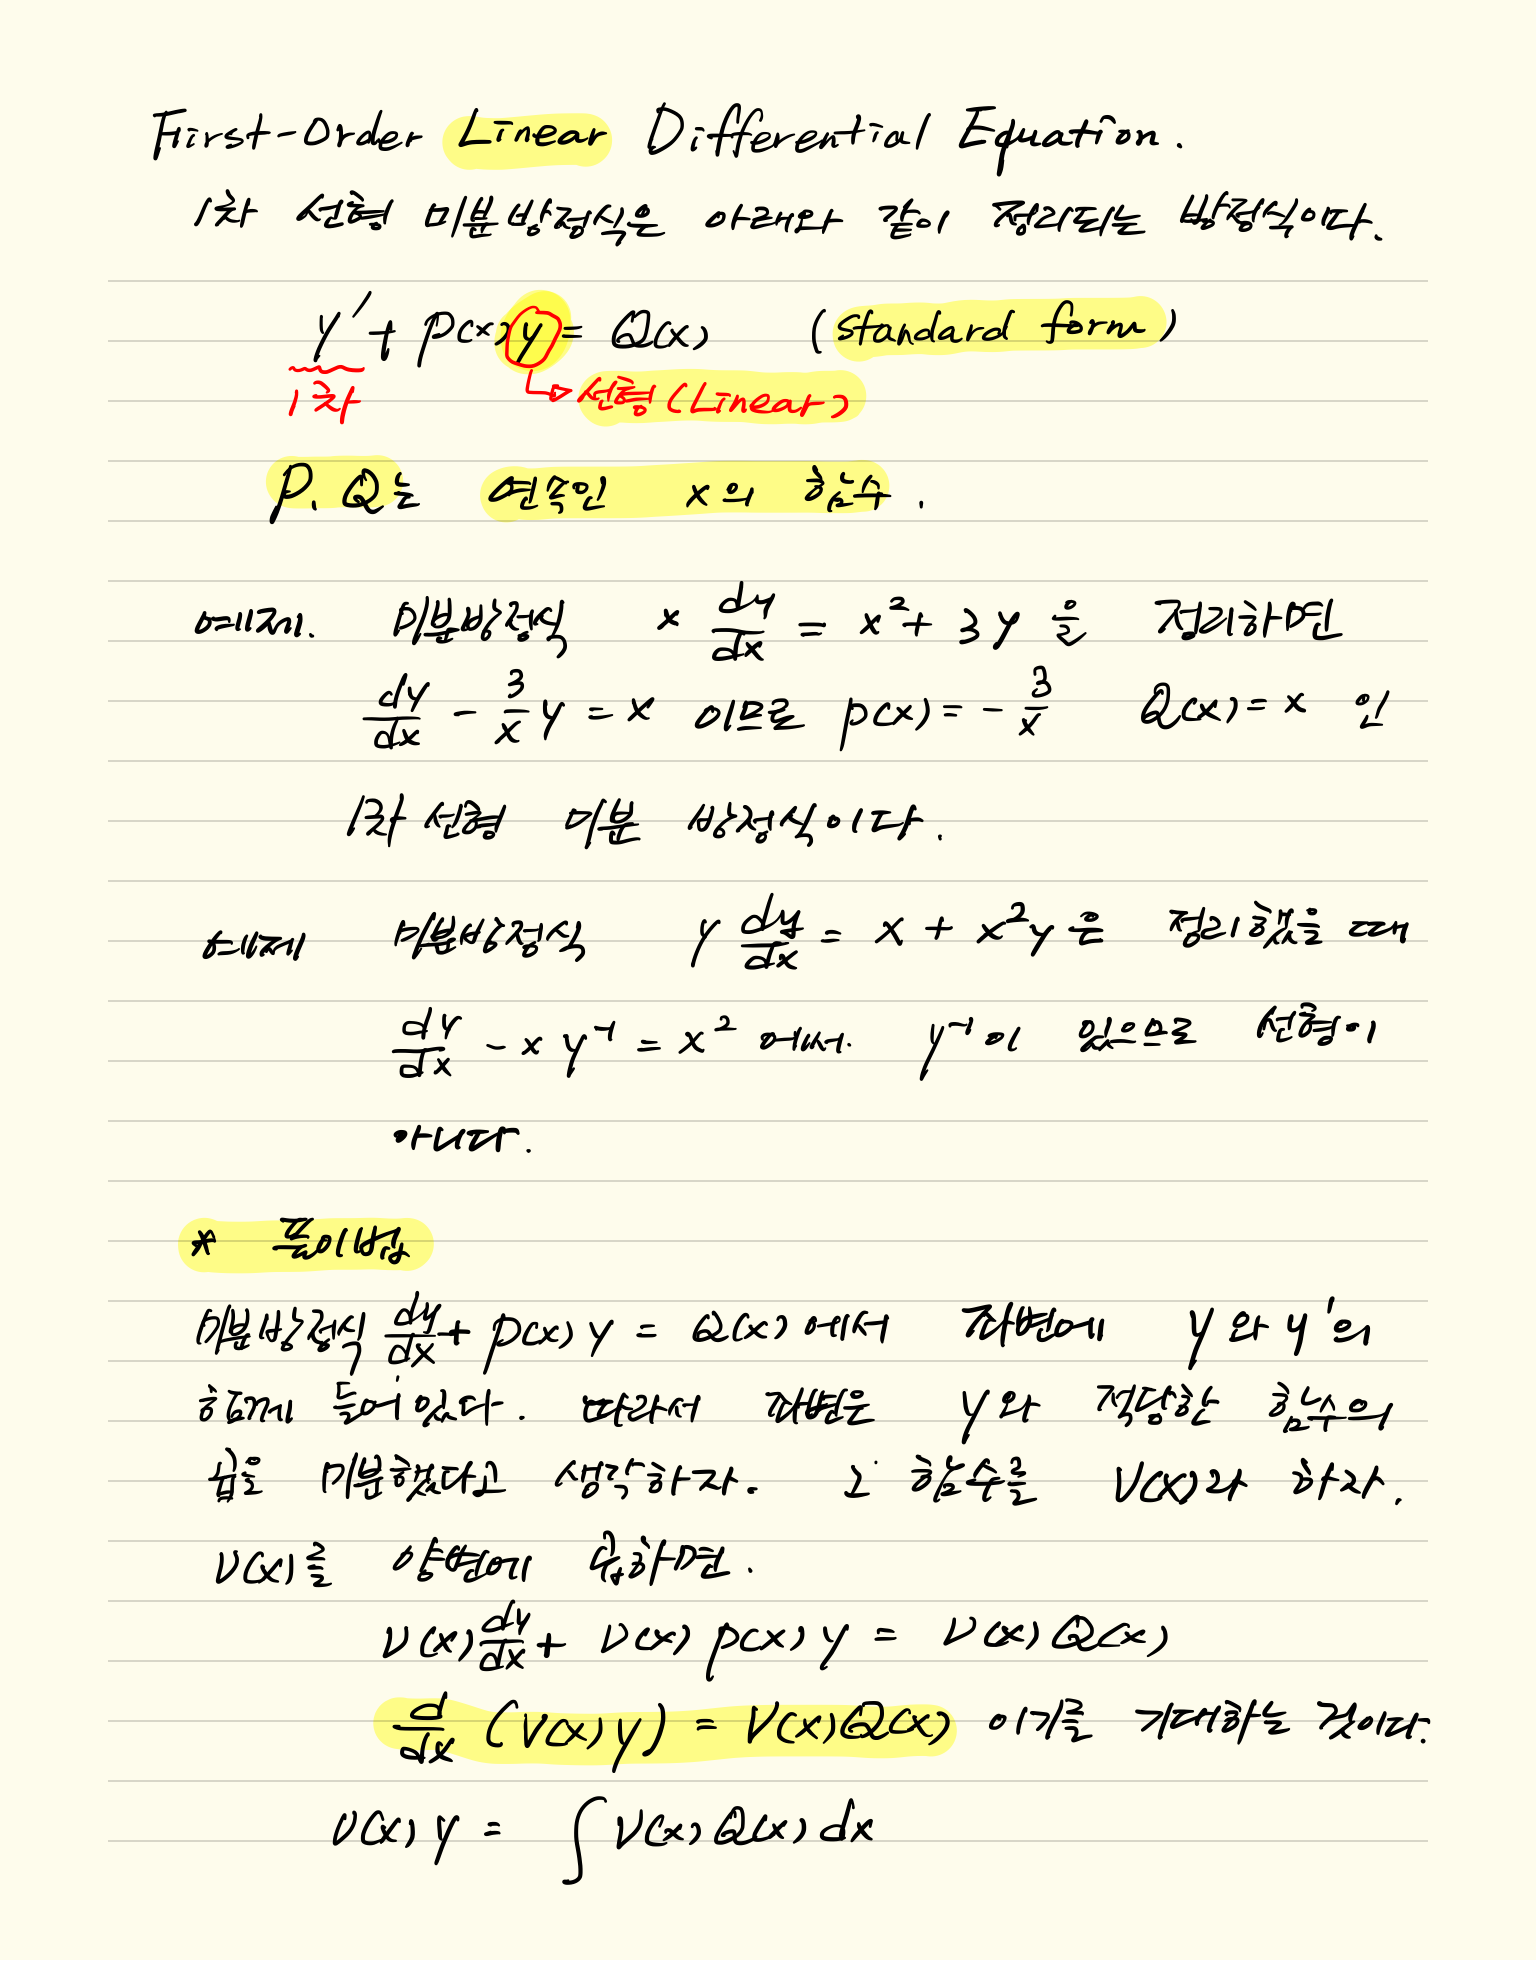 First-Order Linear Differential Equation.
1차 선형 미분방정식은 아래와 같이 정리되는 방정식이다.
y' + p(x) y = Q(x) (standard form)
1차 선형(Linear)
P, Q는 연속인 x의 함수.
예제. 미분방정식 x dy/dx = x² + 3y 을 정리하면
dy/dx - 3/x y = x 이므로 p(x) = - 3/x Q(x) = x 인
1차 선형 미분 방정식이다.
예제 미분방정식 y dy/dx = x + x²y 은 정리했을 때
dy/dx - x y⁻¹ = x² 에서. y⁻¹이 있으므로 선형이
아니다.
* 풀이법
미분방정식 dy/dx + p(x) y = Q(x) 에서 좌변에 y와 y'의
함께 들어있다. 따라서 좌변은 y와 적당한 함수의
곱을 미분했다고 생각하자. 그 함수를 V(x)라 하자.
V(x)를 양변에 곱하면.
V(x) dy/dx + V(x) p(x) y = V(x) Q(x)
d/dx (V(x) y) = V(x) Q(x) 이기를 기대하는 것이다.
V(x) y = ∫ V(x) Q(x) dx